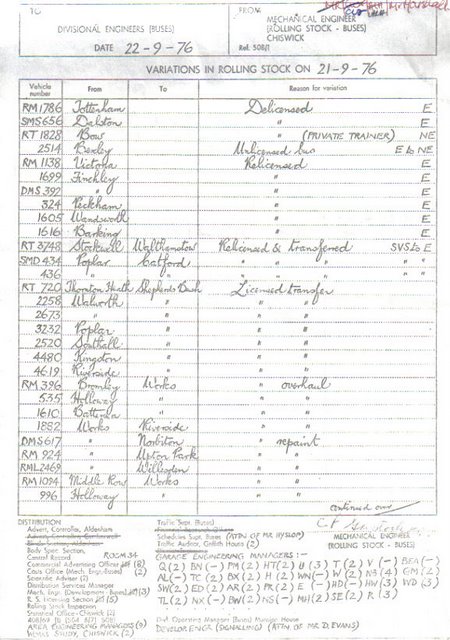 TO
FROM
DIVISIONAL ENGINEERS (BUSES)
MECHANICAL ENGINEER
(ROLLING STOCK - BUSES)
CHISWICK
DATE 22-9-76
Ref. 508/1
VARIATIONS IN ROLLING STOCK ON 21-9-76
Vehicle number From To Reason for variation
RM 1786 Tottenham Delicensed E
SMS 656 Dalston " E
RT 1828 Bow " (PRIVATE TRAINER) NE
2514 Bexley Unlicensed bus E to NE
RM 1138 Victoria Relicensed E
1699 Finchley " E
DMS 392 " " E
324 Peckham " E
1605 Wandsworth " E
1616 Barking " E
RT 3748 Stockwell Walthamstow Relicensed & transferred SVS to E
SMD 434 Poplar Catford " " " " "
436 " " " " " " "
RT 720 Thornton Heath Shepherds Bush Licensed transfer
2258 Walworth " " "
2673 " " " "
3232 Poplar " " "
2520 Southall " " "
4480 Kingston " " "
4619 Riverside " " "
RM 396 Bromley Works " overhaul
535 Holloway " " "
1610 Battersea " " "
1882 Works Riverside " "
DMS 617 " Norbiton " repaint
RM 924 " Upton Park " "
RML 2469 " Willesden " "
RM 1094 Middle Row Works " "
996 Holloway " " "
continued over
DISTRIBUTION
MECHANICAL ENGINEER
(ROLLING STOCK - BUSES)
Advert. Controller, Aldenham
Body Spec. Section,
Central Record ROOM 34
Commercial Advertising Officer (8)
Costs Office (Mech. Engr.-Buses) (2)
Scientific Adviser (2)
Distribution Services Manager
Mech. Engr. Development (Buses) (3)
R. S. Licensing Section (5)
Rolling Stock Inspection
Statistical Office - Chiswick (2)
AREA ENGINEERING MANAGERS (9)
WORKS STUDY, CHISWICK (2)
Traffic Supt. (Buses)
Schedules Supt. Buses (ATTN OF MR HYSLOP)
Traffic Auditor, Griffith House (2)
GARAGE ENGINEERING MANAGERS :-
Q (2) BN (-) PM (2) HT (2) U (3) T (2) V (-) BEA (-)
AL (-) TC (2) BX (2) H (2) WN (-) W (2) NB (4) GM (2)
SW (2) ED (2) AR (2) PR (2) E (-) HD (-) HW (3) WD (3)
TL (2) NX (-) BW (2) HS (-) MH (2) SE (2) R (3)
Divl. Operating Managers (Buses) Manager House
DEVELOP. ENGR (SIGNALLING) (ATTN OF MR D. EVANS)